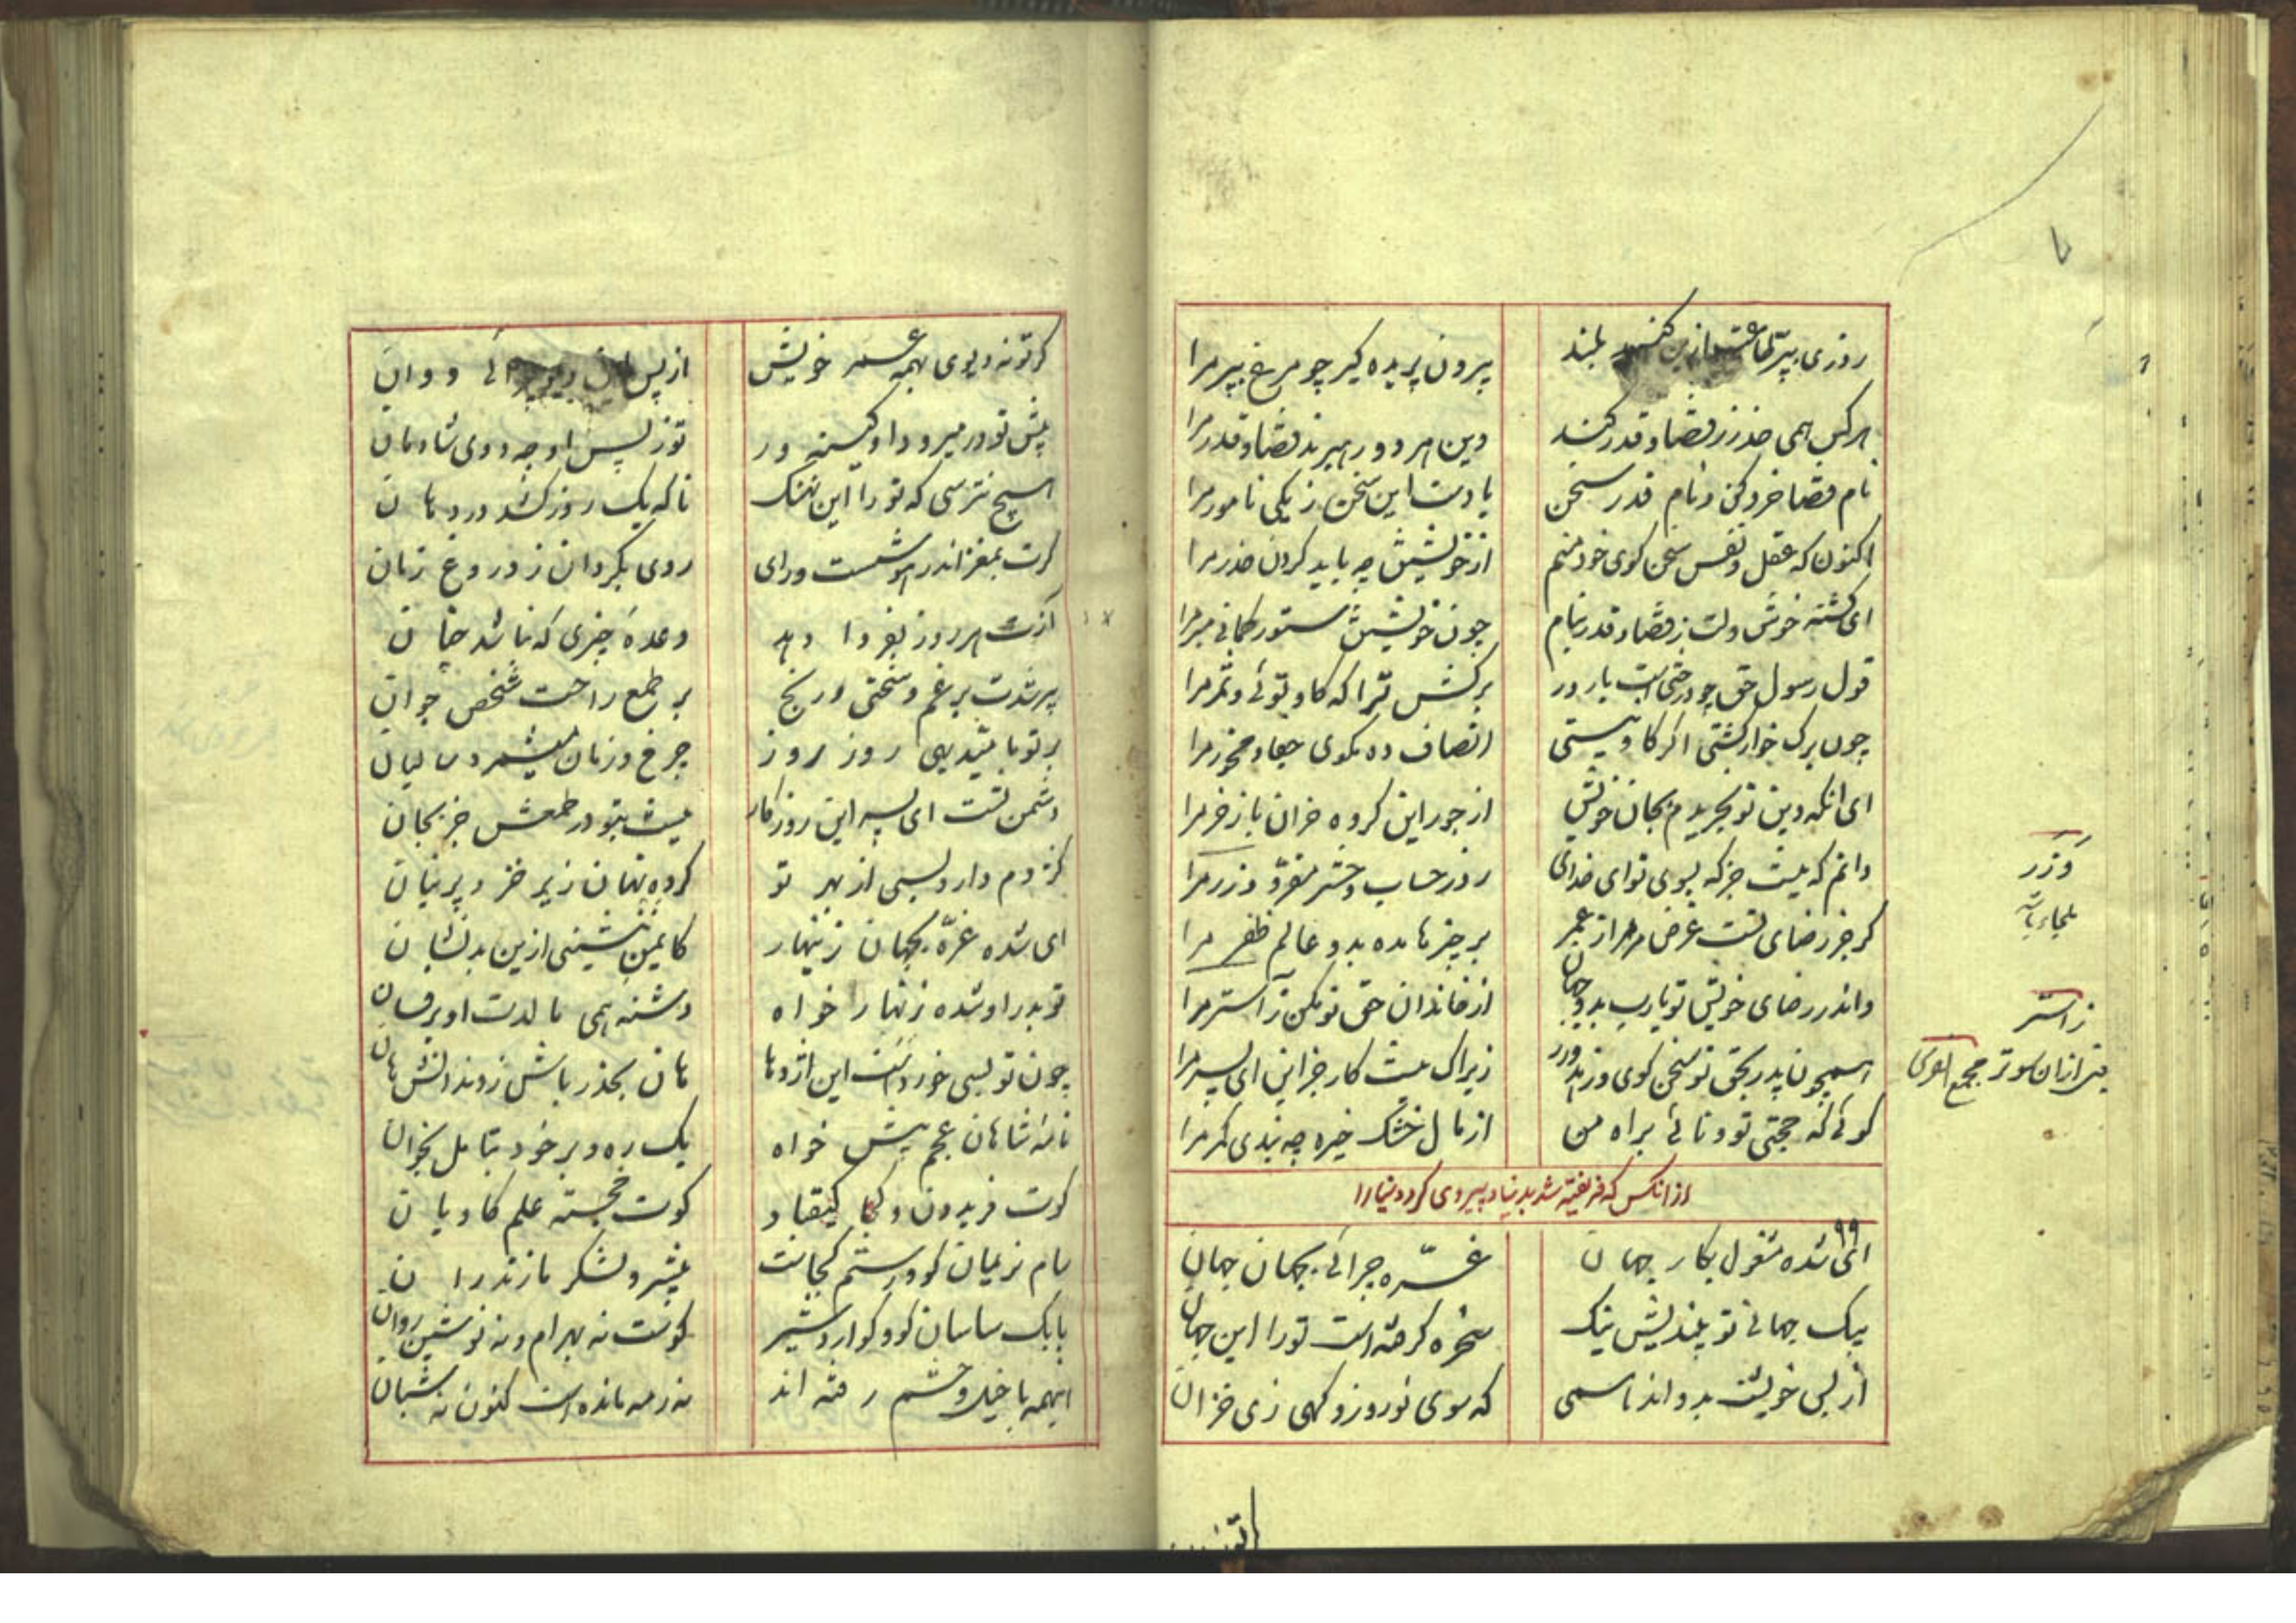 روزی بپر طاعت ازین گنبد بلند
پرون پریده گیر چو مرغ بپر مرا
هرکس همی حذر ز قضا و قدر کنند
وین هر دو رهبرند قضا و قدر مرا
نام قضا خرد کن و نام قدر سخن
یادست این سخن ز یکی نامور مرا
اکنون که عقل و نفس سخن گوی خود منم
از خویشتن چه باید کردن حذر مرا
ای گشته خوش دلت ز قضا و قدر بنام
چون خویشتن ستور گمانی مبر مرا
قول رسول حق چو درختی است بارور
برگش ترا که گاو توئی و ثمر مرا
چون برگ خوار گشتی اگر گاو نیستی
انصاف ده بگوی جفا و مخور مرا
ای انکه دین تو بخریدم بجان خویش
از جور این گروه خران باز خر مرا
دانم که نیست جز که بسوی تو ای خدای
روز حساب و حشر مفرّ و وزر مرا
گر جز رضای تست غرض مر مرا ز عمر
بر چیزها مده بدو عالم ظفر مرا
واندر رضای خویش تو یارب بدو جهان
از خاندان حق تو مکن زآستر مرا
همچون پدر بحق تو سخن گوی و زهد ورز
زیراک نیست کار جز این ای پسر مرا
گوئی که حجتی تو و نالی براه من
از نال خشک خیره چه بندی کمر مرا
وَزَر
ملجاء
زاستر
یعنی ازان سوتر مجمع الفرس
ازانکس که فریفته شد بدنیا و پیروی کرد دنیا را
۹۹
ای شده مشغول بکار جهان
غرّه چرائی بجهان جهان
پیک جهانی تو بیندیش نیک
سخره گرفته است تو را این جهان
از پس خویشت بدواند همی
گه سوی نوروز و گهی زی خزان
گر تو نه دیوی بهمه عمر خویش
از پس این دیو چرائی دوان
پیش تو در میرود او کینه ور
تو ز پس او چه دوی شادمان
هیچ نترسی که تو را این نهنگ
ناگه یک روز کشد در دهان
گرت بمغز اندر هوشست و رای
روی بگردان ز دروغ زبان
آنت هر روز بفردا دهد
وعده چیزی که نباشد چنان
پیر شدت بر غم و سختی و رنج
بر طمع راحت شخص جوان
بر تو بامیّد بهی روز روز
چرخ و زمان میشمرد سالیان
دشمن تست ای پسر این روزگار
نیست بتو در طمعش جز بجان
کژدم دارد بسی از بهر تو
کرده نهان زیر خز و پرنیان
ای شده غرّه بجهان زینهار
کایمن ننشینی ازین بدنشان
تو بدر او شده زنهار خواه
دشنه همی مالدت او بر فسان
چون تو بسی خورده است این اژدها
هان بحذر باش ز دندانش هان
نامه شاهان عجم پیش خواه
یک ره و بر خود بتامل بخوان
کوت فریدون و کجا کیقباد
کوت خجسته علم کاویان
سام نریمان کو و رستم کجاست
پیشرو لشکر مازندران
بابک ساسان کو و کو اردشیر
کوست نه بهرام و نه نوشین روان
اینهمه با خیل و حشم رفته اند
نه رمه مانده است کنون نه شبان